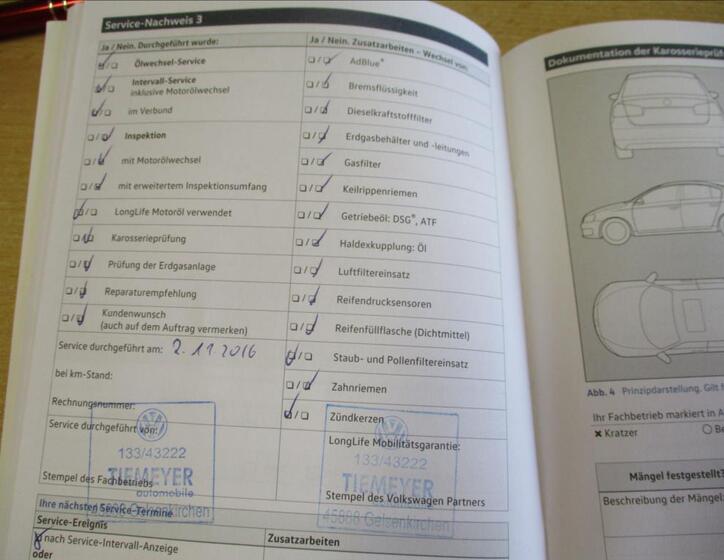 Service-Nachweis 3
Ja / Nein. Durchgeführt wurde:
Ölwechsel-Service
Intervall-Service
inklusive Motorölwechsel
im Verbund
Inspektion
mit Motorölwechsel
mit erweitertem Inspektionsumfang
LongLife Motoröl verwendet
Karosserieprüfung
Prüfung der Erdgasanlage
Reparaturempfehlung
Kundenwunsch
(auch auf dem Auftrag vermerken)
Service durchgeführt am: 2.11.2016
bei km-Stand:
Rechnungsnummer:
Service durchgeführt von:
133/43222
TIEMEYER
automobile
Stempel des Fachbetriebs
45888 Gelsenkirchen
Ja / Nein. Zusatzarbeiten - Wechsel von:
AdBlue®
Bremsflüssigkeit
Dieselkraftstofffilter
Erdgasbehälter und -leitungen
Gasfilter
Keilrippenriemen
Getriebeöl: DSG®, ATF
Haldexkupplung: Öl
Luftfiltereinsatz
Reifendrucksensoren
Reifenfüllflasche (Dichtmittel)
Staub- und Pollenfiltereinsatz
Zahnriemen
Zündkerzen
LongLife Mobilitätsgarantie:
133/43222
TIEMEYER
Stempel des Volkswagen Partners
45888 Gelsenkirchen
Ihre nächsten Service-Termine
Service-Ereignis
nach Service-Intervall-Anzeige
oder
Zusatzarbeiten
Dokumentation der Karosserieprüf
Abb. 4 Prinzipdarstellung. Gilt f
Ihr Fachbetrieb markiert in A
× Kratzer
Be
Mängel festgestellt?
Beschreibung der Mängel: